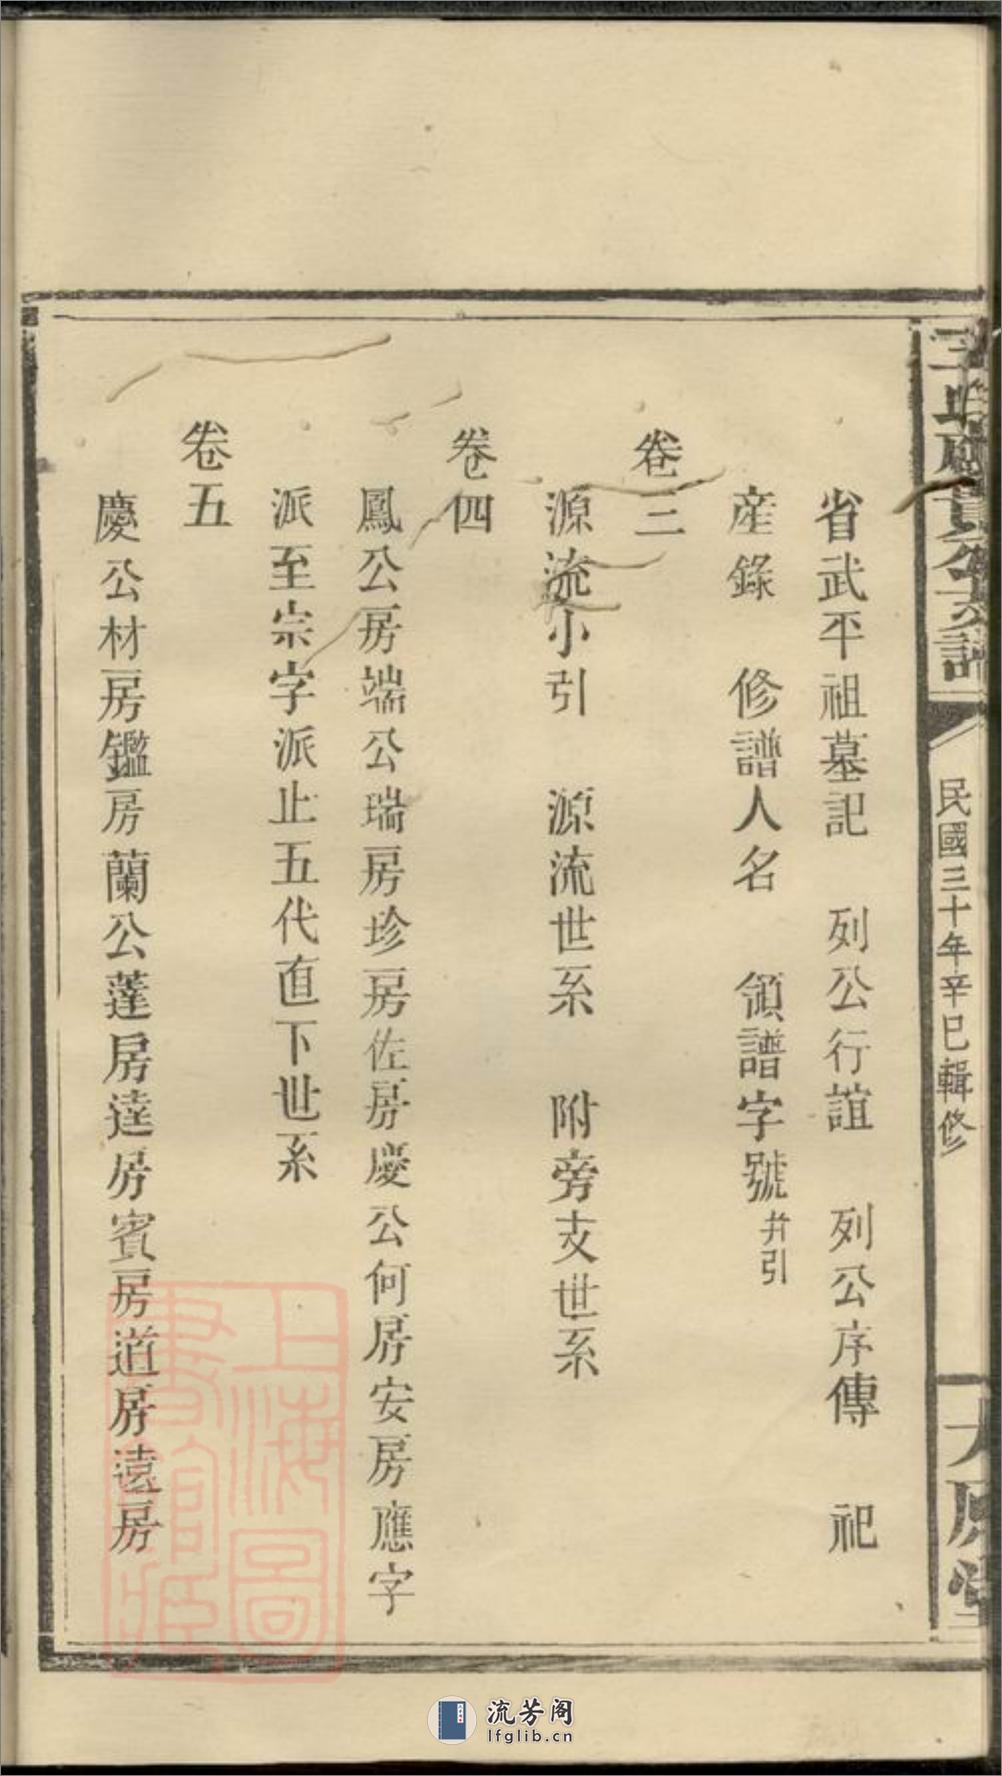 民國三十年辛巳輯修
省武平祖墓記　列公行誼　列公序傳　祀
産錄　修譜人名　領譜字號并引
卷三
源流小引　源流世系　附旁支世系
卷四
鳳公房端公瑞房珍房佐房慶公何房安房應字
派至宗字派止五代直下世系
卷五
慶公材房鑑房蘭公蓬房達房賓房道房遠房
上海圖書館藏
流芳阁
lfglib.cn